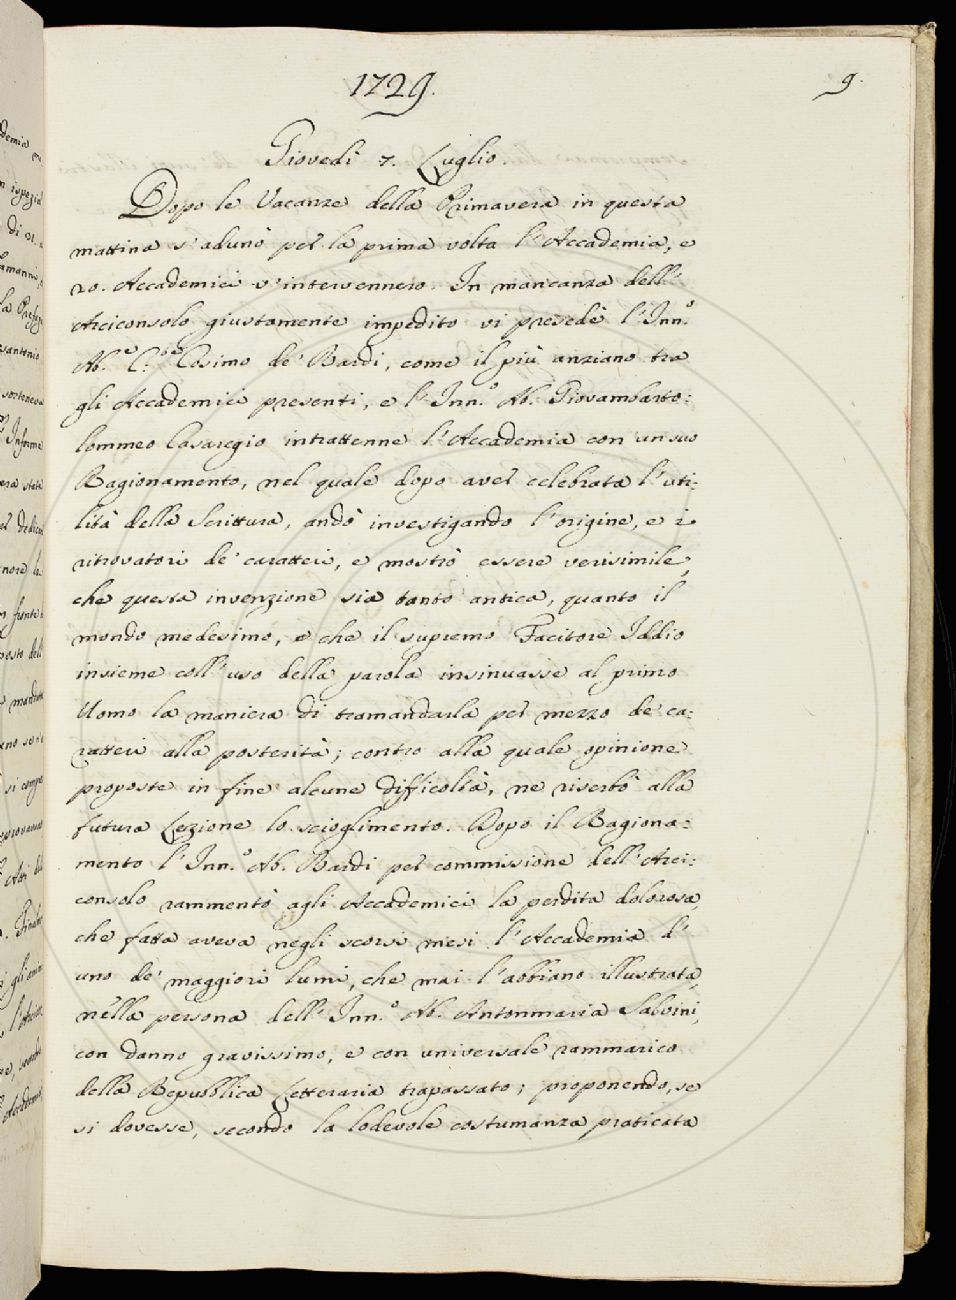 1729.
9.
Giovedì 7. Luglio.
Dopo le Vacanze della Primavera in questa
mattina s'adunò per la prima volta l'Accademia, e
20. Accademici v'intervennero. In mancanza dell'
Arciconsolo giustamente impedito vi presedè l'Inn.º
Ab.e C.re Cosimo de' Bardi, come il più anziano tra
gli Accademici presenti, e l'Inn.º Ab. Giovambarto:
lommeo Casaregio intrattenne l'Accademia con un suo
Ragionamento, nel quale dopo aver celebrata l'uti:
lità della Scrittura, andò investigando l'origine, e i
ritrovatori de' caratteri, e mostrò essere verisimile,
che questa invenzione sia tanto antica, quanto il
mondo medesimo, e che il supremo Facitore Iddio
insieme coll'uso della parola insinuasse al primo
Uomo la maniera di tramandarla per mezzo de' ca:
ratteri alla posterità; contro alla quale opinione
proposte in fine alcune difficoltà, ne riserbò alla
futura Lezione lo scioglimento. Dopo il Ragiona:
mento l'Inn.º Ab. Bardi per commissione dell'Arci:
consolo rammentò agli Accademici la perdita dolorosa,
che fatta aveva negli scorsi mesi l'Accademia d'
uno de' maggiori lumi, che mai l'abbiano illustrata,
nella persona dell'Inn.º Ab. Antonmaria Salvini,
con danno gravissimo, e con universale rammarico
della Repubblica Letteraria trapassato; proponendo, se
si dovesse, secondo la lodevole costumanza praticata